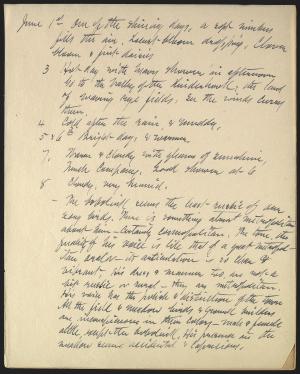 June 1st One of the shining days, a soft
fills the air. Locust-bloom dropping, Clover
bloom & first daisies
3 Hot day with heavy shower in afternoon
Go to the valley of the Kinderhook; the land
of waving rye fields. See the winds
them.
4 Cold after the rain & cloudy.
5 & 6th Bright days, & warmer
7. Warm & Cloudy with gleams of sunshine,
Much Company. Good shower at 6
8 Cloudy, very humid.
- The bobolink seems the least rustic of our
song birds. There is something about
about him - certainly cosmopolitan. The tone, the
quality of his voice is like that of a great
orator. Its articulation is so clear &
vibrant; his dress & manners too, are not a
bit rustic or rural - they are metropolitan.
His voice has the polish & distinction of the town
All the field & meadow birds & ground builders
are inconspicuous in their colors - male & female
alike, except the bobolink. His presence in the
meadow seems accidental & capricious.